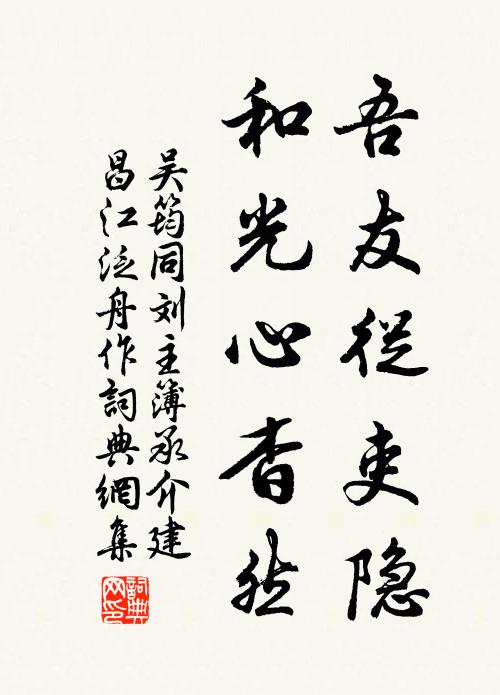 吾友從吏隐
和光心杳然
吴筠同刘主簿承介建
昌江泛舟作詞典網集
詞典网印